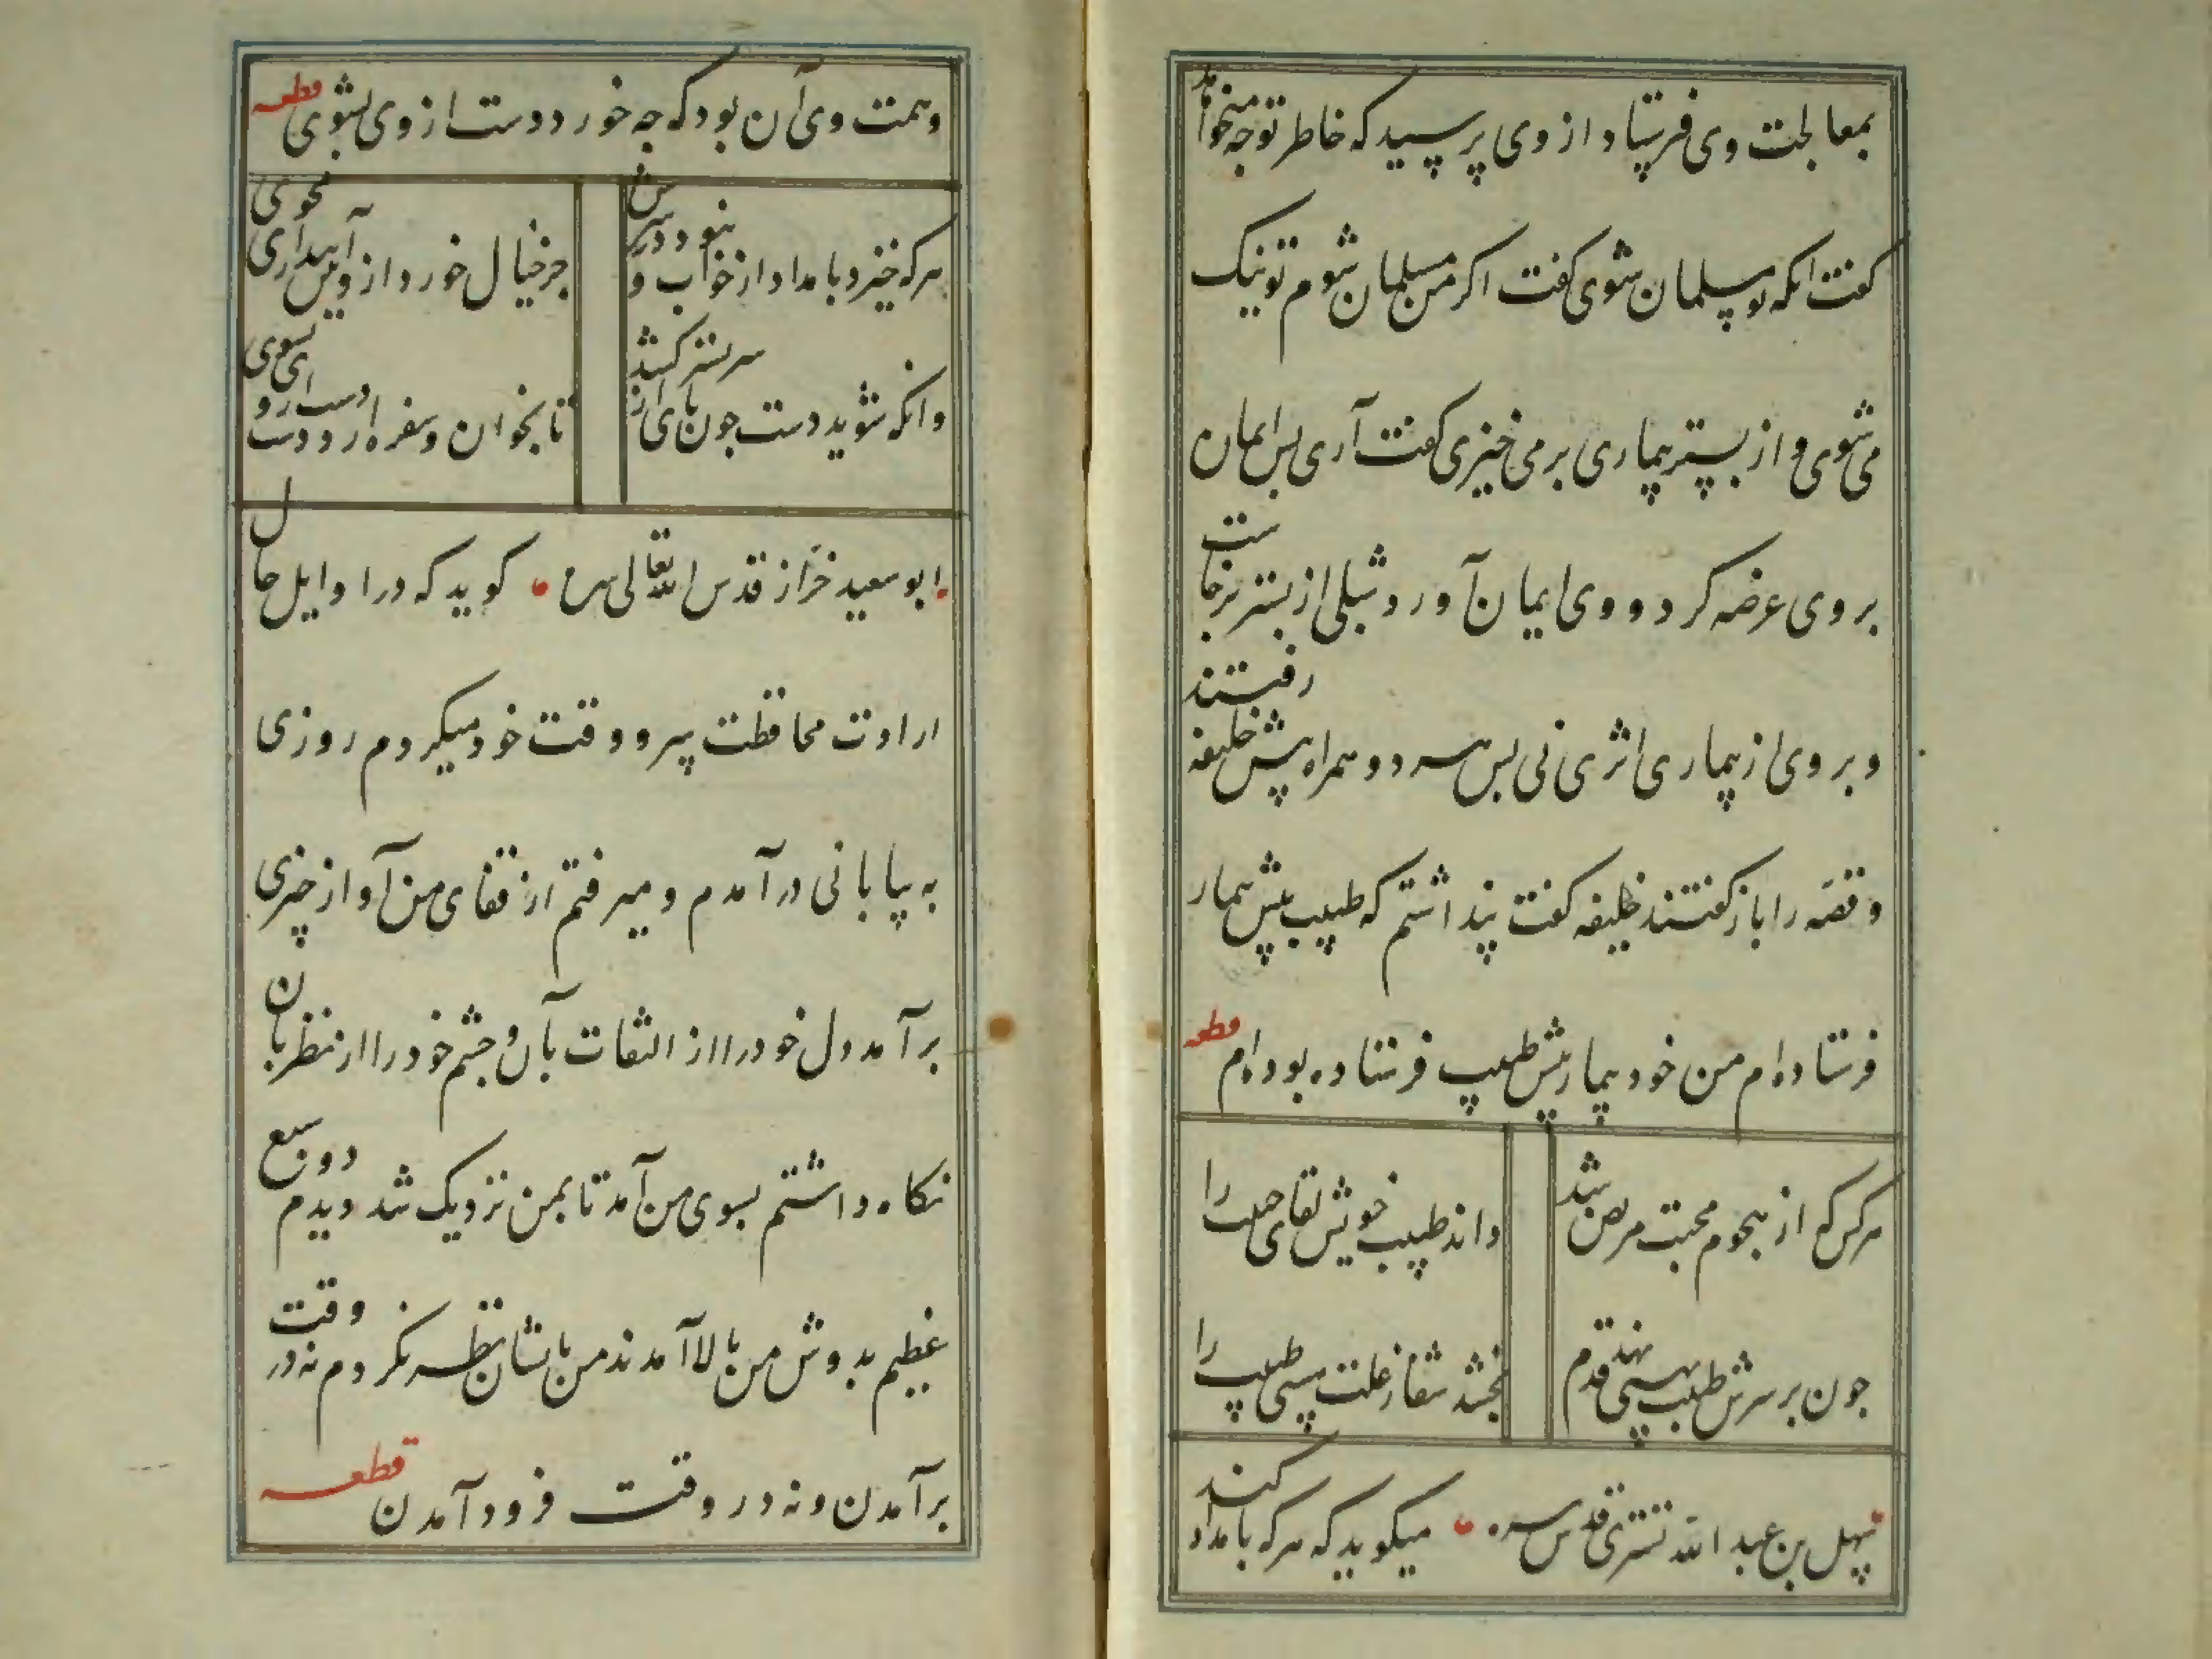 بمعالجت وی فرستاد از وی پرسید که خاطر تو چه میخواهد
کفت انکه تو مسلمان شوی کفت اکر من مسلمان شوم تو نیک
می شوی و از بستر بیماری بر می خیزی کفت آری پس ایمان
بر وی عرضه کرد و وی ایمان آورد شبلی از بستر برخاست
و بر وی از بیماری اثری نی پس هر دو همراه پیش خلیفه رفتند
و قصه را باز کفتند خلیفه کفت پنداشتم که طبیب پیش بیمار
فرستاده ام من خود بیمار پیش طبیب فرستاده بوده ام قطعه
هر کس که از هجوم محبت مریض شد
داند طبیب خویش لقای حبیب را
جون بر سرش طبیب نهد قدم
بخشد شفا ز علت هستی طبیب را
سهل بن عبد الله تستری قدس سره میکوید که هر که بامداد کند
و همت وی آن بود که جه خورد دست از وی بشوی قطعه
هر که خیزد بامداد از خواب و نبود در سرش
جز خیال خورد از وی بیداری مجوی
وانکه شوید دست جون پای از سر بستر کشد
تا بخوان و سفره آرد دست از وی بشوی
ابو سعید خراز قدس الله تعالی سره کوید که در اوایل حال
ارادت محافظت سر و وقت خود میکردم روزی
به بیابانی در آمدم و میرفتم از قفای من آواز چیزی
بر آمد دل خود را از التفات بآن و جشم خود را از نظر بآن
نکاه داشتم بسوی من آمد تا بمن نزدیک شد دیدم دو سبع
عظیم بدوش من بالا آمدند من بایشان نظر نکردم نه در وقت
بر آمدن و نه در وقت فرود آمدن قطعه